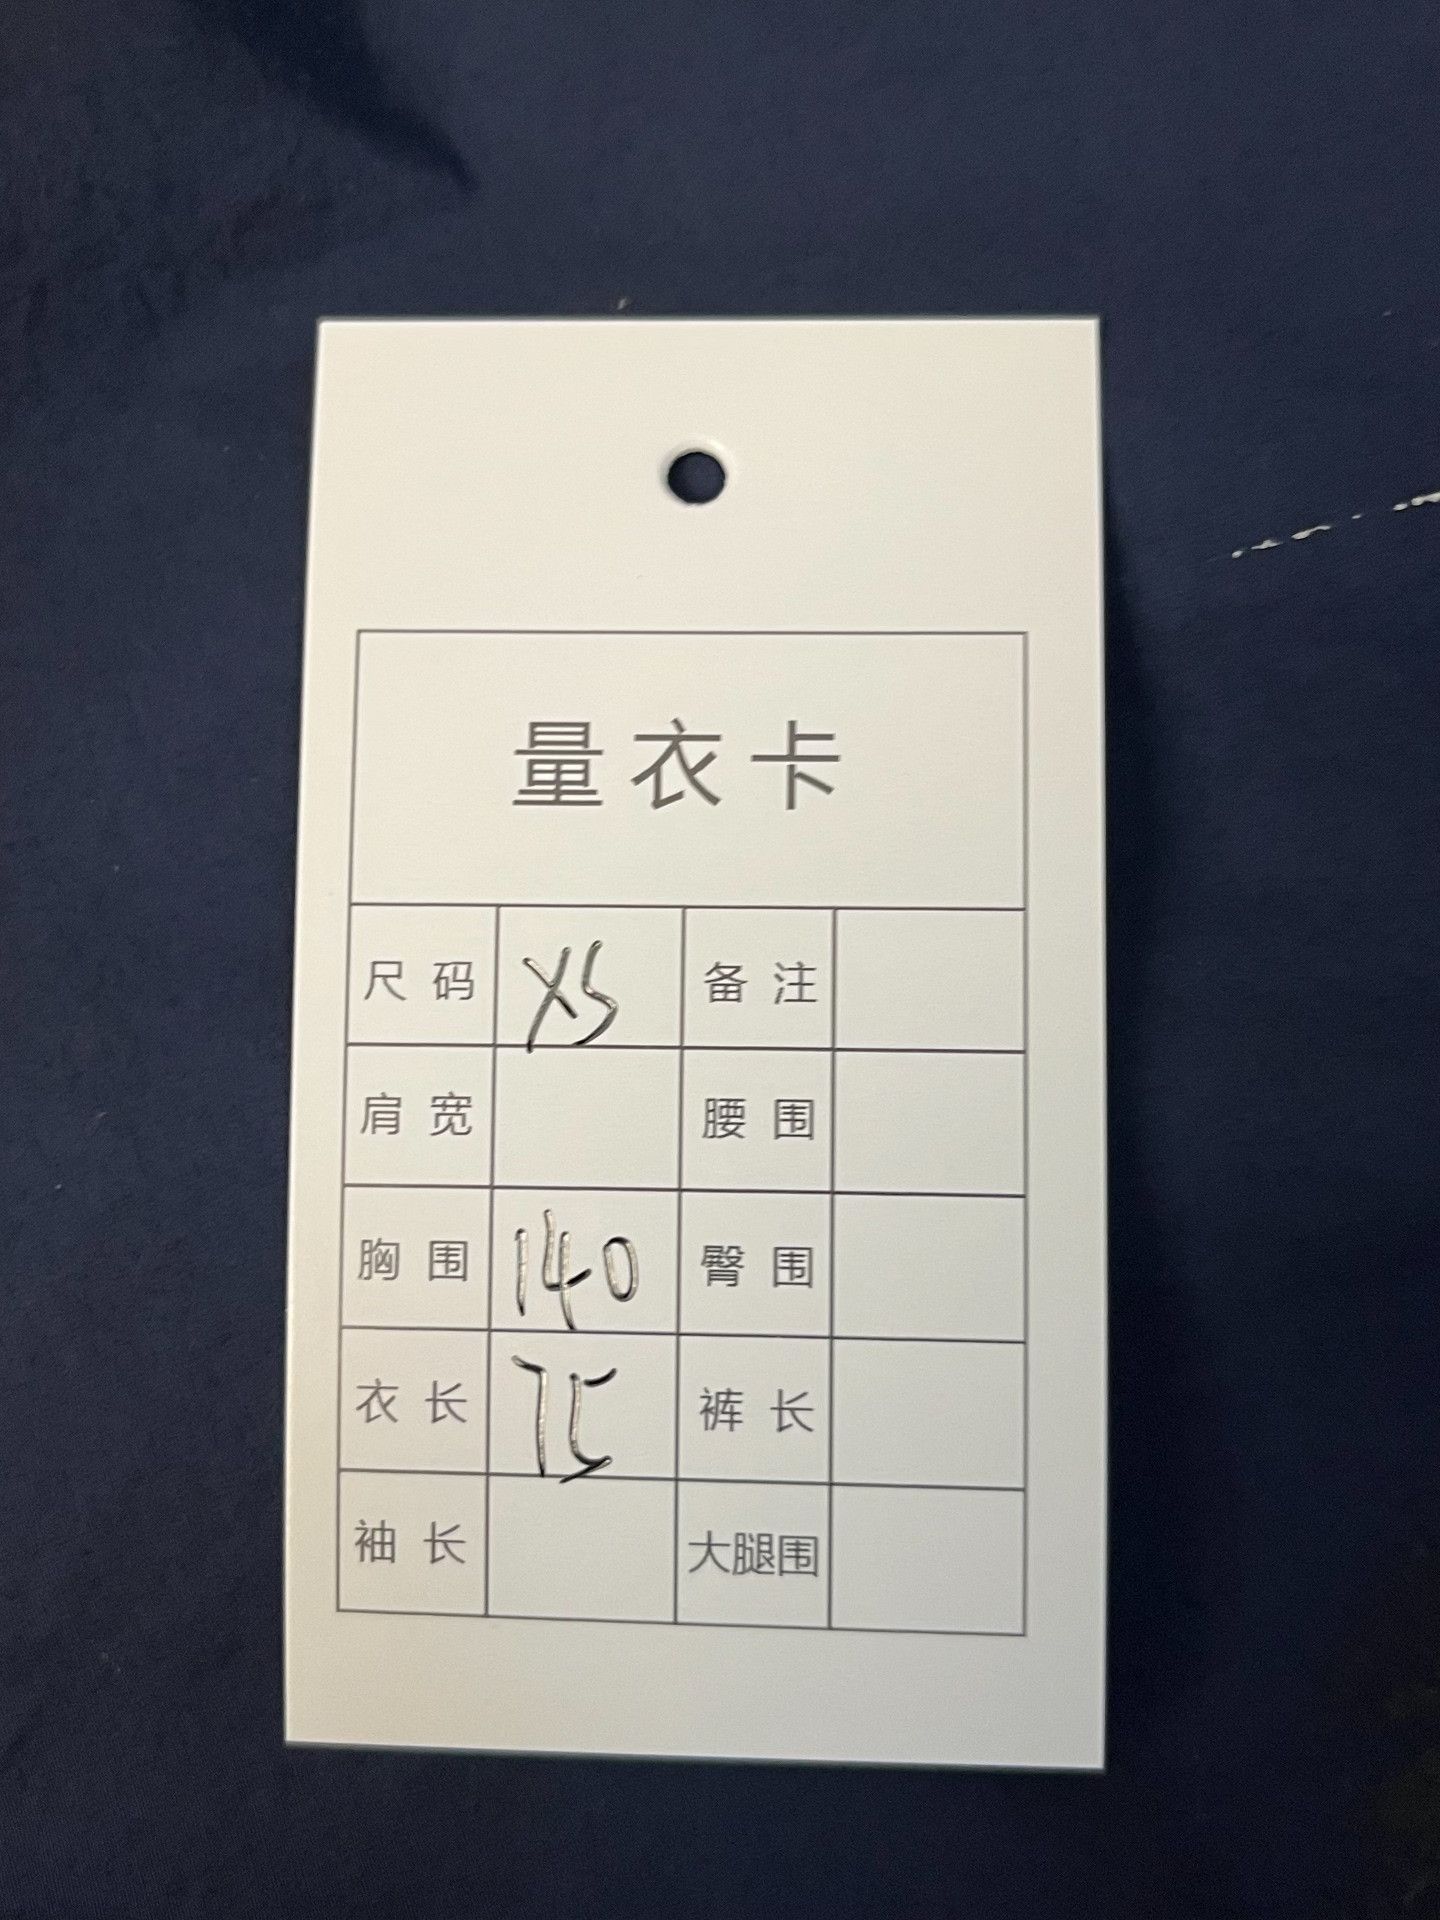 量衣卡
尺码 XS 备注
肩宽 腰围
胸围 140 臀围
衣长 75 裤长
袖长 大腿围